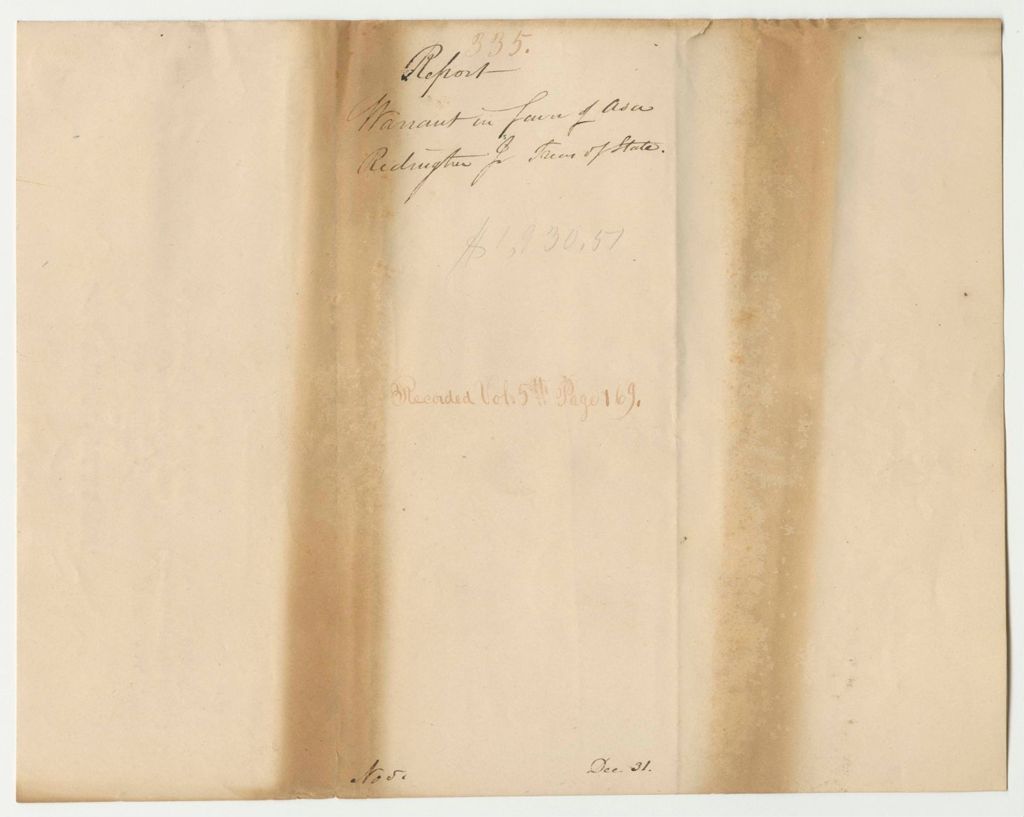 335.
Report
Warrant in favor of Asa
Redington Jr Treas of State.
$1,930,51
Recorded Vol. 5th Page 169.
No 5.
Dec. 31.